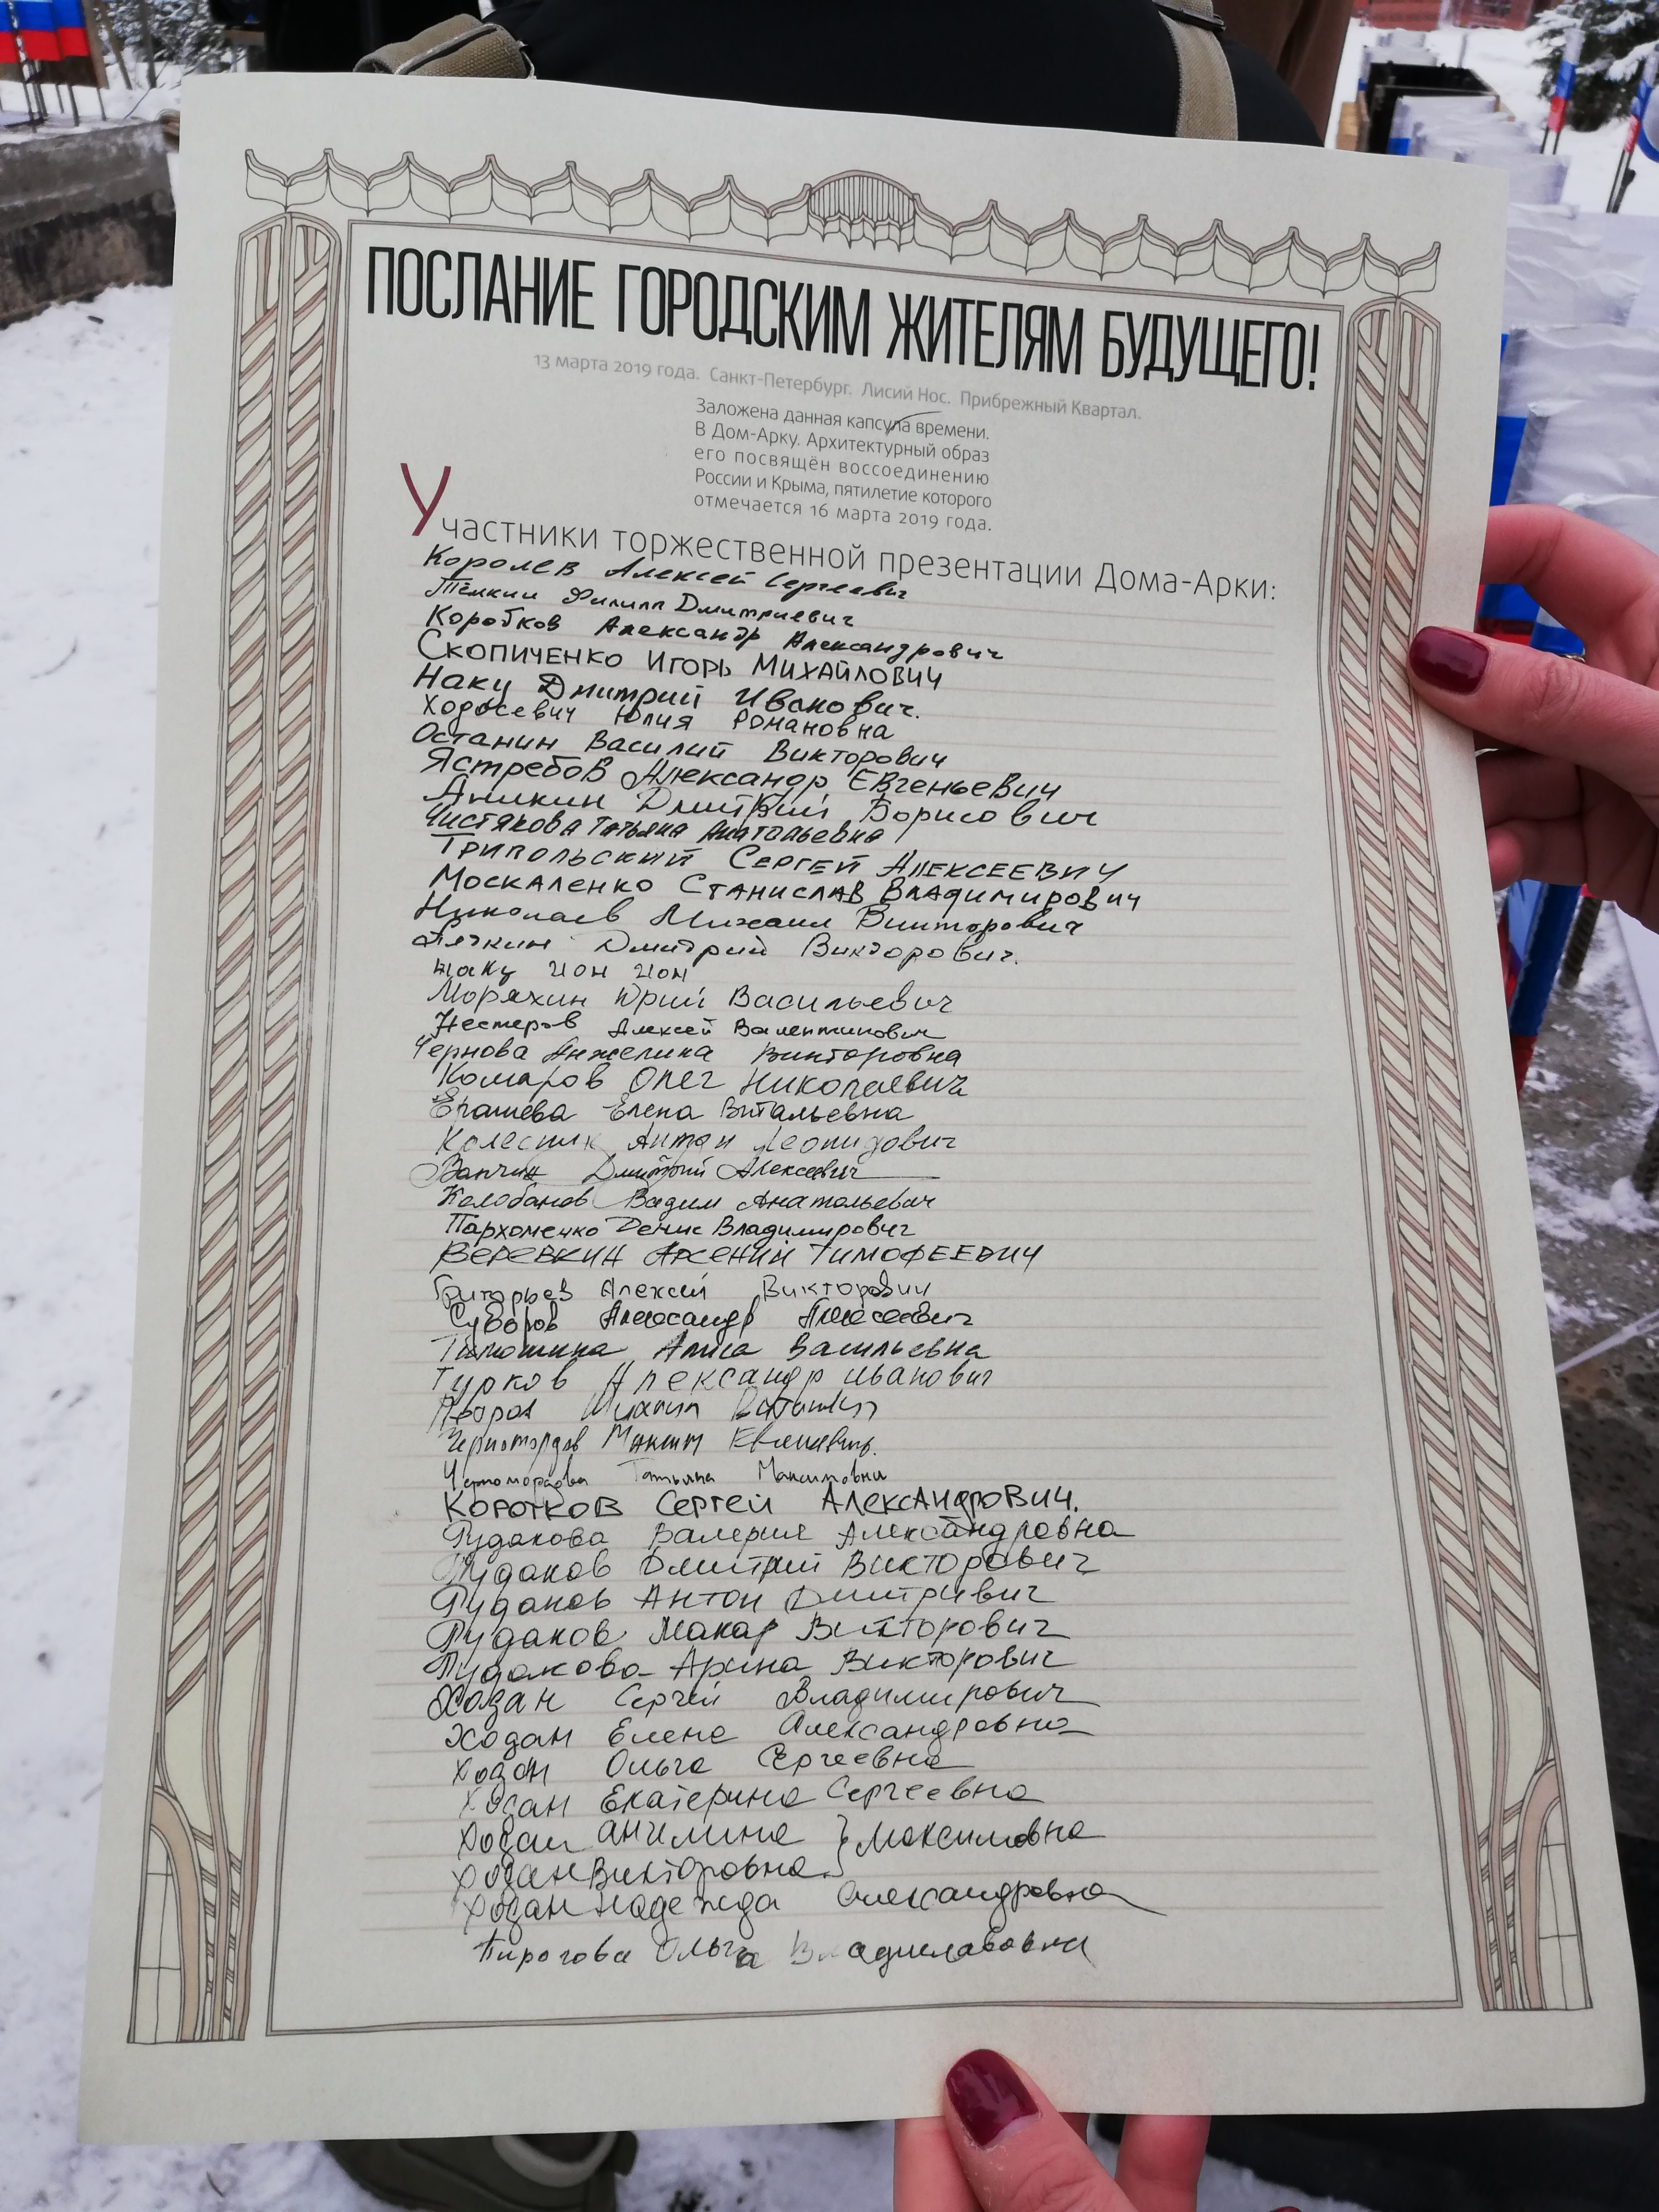 ПОСЛАНИЕ ГОРОДСКИМ ЖИТЕЛЯМ БУДУЩЕГО!
13 марта 2019 года. Санкт-Петербург. Лисий Нос. Прибрежный Квартал.
Заложена данная капсула времени.
В Дом-Арку. Архитектурный образ
его посвящён воссоединению
России и Крыма, пятилетие которого
отмечается 16 марта 2019 года.
Участники торжественной презентации Дома-Арки:
Королев Алексей Сергеевич
Тёлкин Филипп Дмитриевич
Коробков Александр Александрович
Скопиченко Игорь Михайлович
Наку Дмитрий Иванович.
Ходосевич Юлия Романовна
Останин Василий Викторович
Ястребов Александр Евгеньевич
Аникин Дмитрий Борисович
Чистякова Татьяна Анатольевна
Трипольский Сергей Алексеевич
Москаленко Станислав Владимирович
Николаев Михаил Викторович
Пяткин Дмитрий Викторович.
Наку Ион Ион
Моряхин Юрий Васильевич
Нестеров Алексей Валентинович
Чернова Анжелика Викторовна
Комаров Олег Николаевич
Елена Витальевна
Колесник Антон Леонидович
Дмитрий Алексеевич
Колобанов Вадим Анатольевич
Пархоменко Денис Владимирович
Веревкин Арсений Тимофеевич
Григорьев Алексей Викторович
Суворов Александр Алексеевич
Тимошина Алиса Васильевна
Турков Александр Иванович
Михаил
Максим
Черномордова Татьяна Максимовна
Коротков Сергей Александрович.
Рудакова Валерия Александровна
Рудаков Дмитрий Викторович
Рудаков Антон Дмитривич
Рудаков Макар Викторович
Рудакова Арина Викторович
Ходан Сергей Владимирович
Ходан Елена Александровна
Ходан Ольга Сергеевна
Ходан Екатерина Сергеевна
Ходан Ангелина } Максимовна
Ходан Викторовна
Ходан Надежда Александровна
Пирогова Ольга Владиславовна